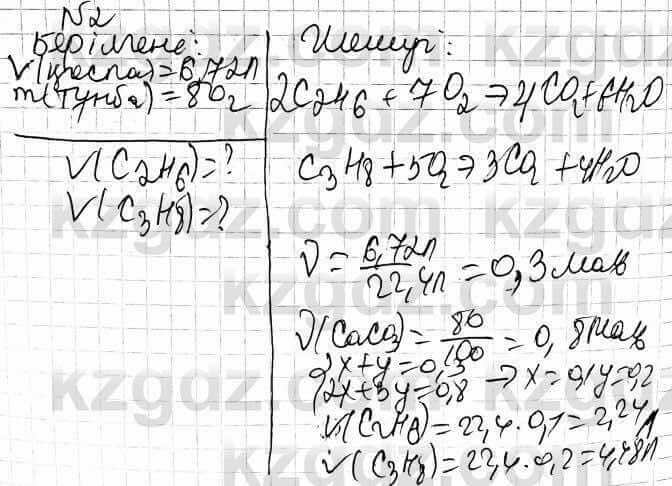 №2
Берілгені:
V(қоспа)=6,72л
m(тұнба)=80г
V(C2H6)=?
V(C3H8)=?
Шешуі:
2C2H6 + 7O2 → 4CO2 + 6H2O
C3H8 + 5O2 → 3CO2 + 4H2O
ν = 6,72л / 22,4л = 0,3 моль
ν(CaCO3) = 80 / 100 = 0,8 моль
{x+y=0,3
{2x+3y=0,8 → x=0,1 y=0,2
V(C2H6) = 22,4 · 0,1 = 2,24л
V(C3H8) = 22,4 · 0,2 = 4,48л
kzgdz.com